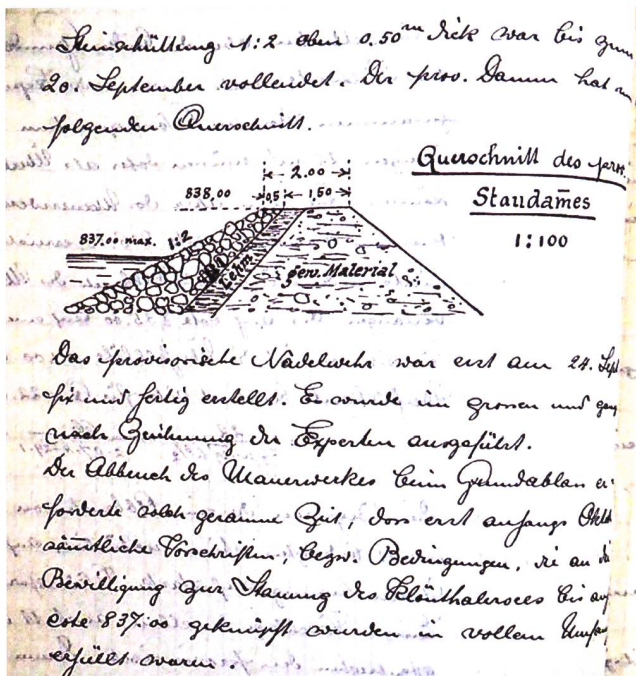 Steinschüttung 1:2 oben 0.50 m dick war bis zum
20. September vollendet. Der prov. Damm hat
folgenden Querschnitt.
Querschnitt des prov.
Staudam̅es
1:100
2.00
838.00 0,5 1,50
837.00 max. 1:2
Lehm
gew. Material
Das provisorische Nadelwehr war erst am 24. Sept
fix und fertig erstellt. Es wurde im grossen und ganz
nach Zeichnung der Experten ausgeführt.
Der Abbruch des Mauerwerkes beim Grundablass er-
forderte solch geraume Zeit, dass erst anfangs Okt
sämtliche Vorschriften, bezw. Bedingungen, die an die
Bewilligung zur Stauung des Klönthalersees bis auf
Cote 837.00 geknüpft wurden in vollem Umfang
erfüllt waren.